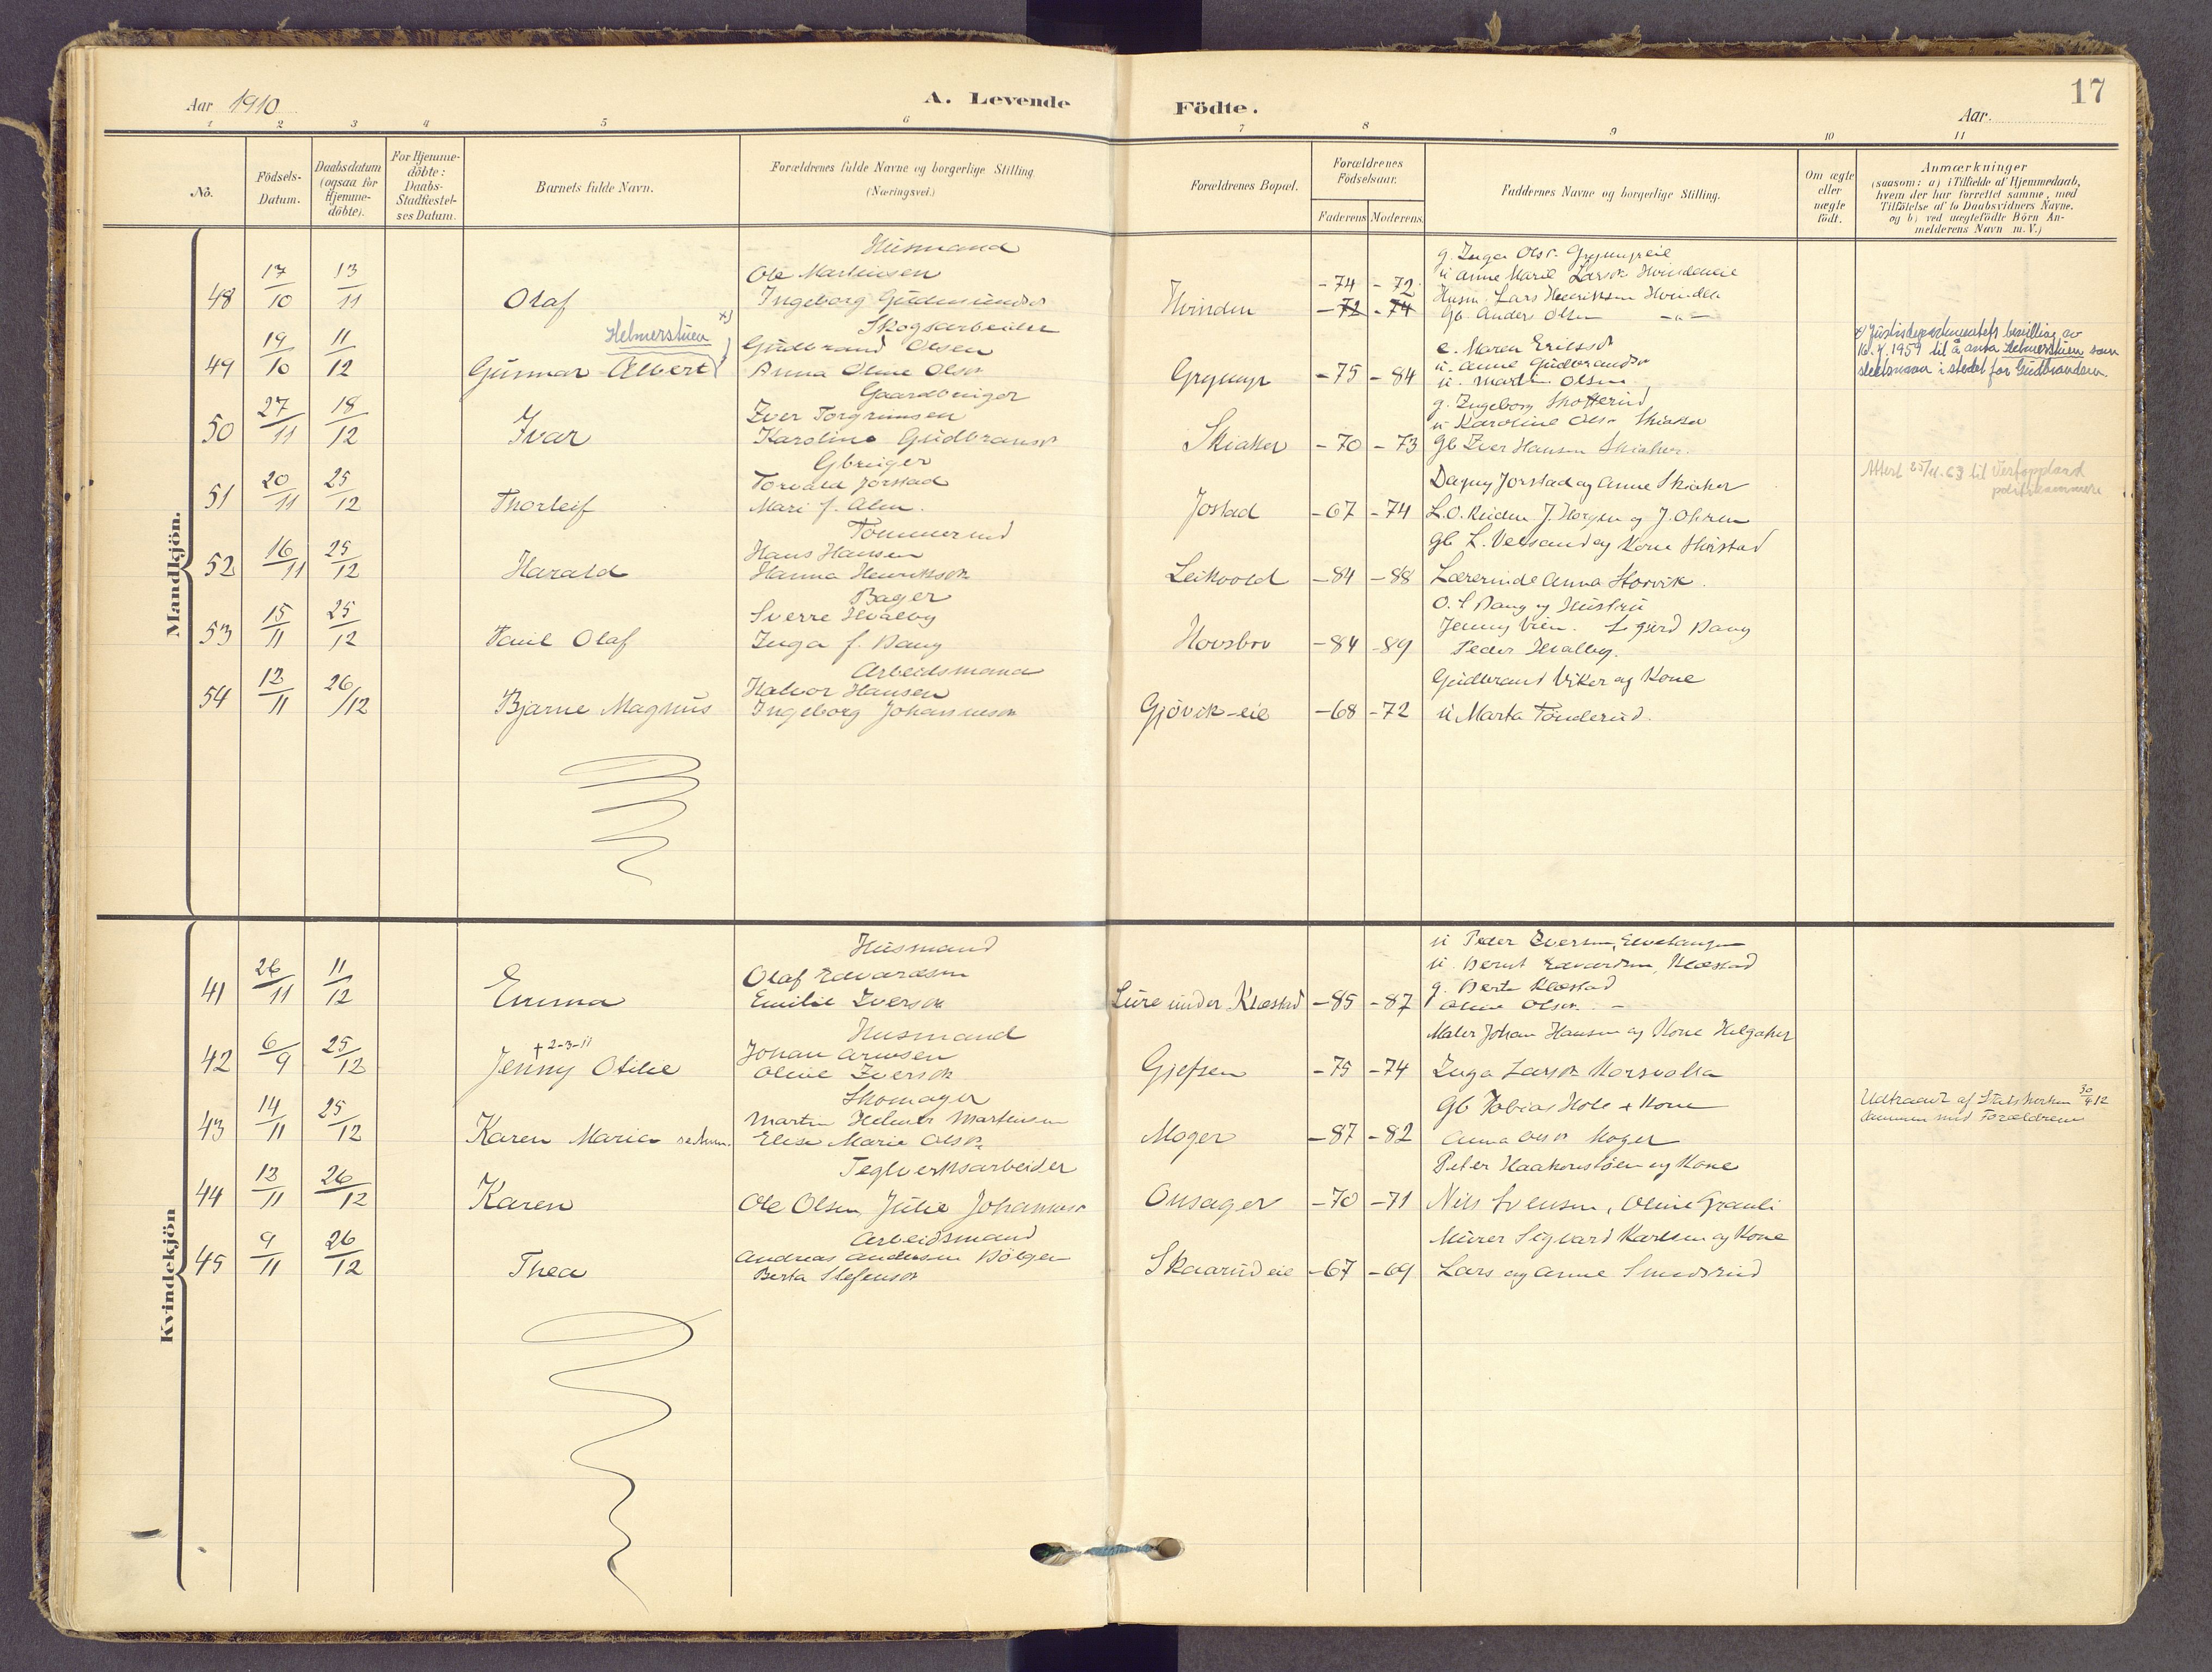 17
Aar 1910
A. Levende Födte.
Aar.
1 2 3 4 5 6 7 8 9 10 11
No.
Födsels-Datum.
Daabsdatum (ogsaa for Hjemme-döbte).
For Hjemme-döbte: Daabs-Stadfæstel-ses Datum.
Barnets fulde Navn.
Forældrenes fulde Navne og borgerlige Stilling
(Næringsvei.)
Forældrenes Bopæl.
Forældrenes Födselsaar.
Faderens Moderens.
Faddernes Navne og borgerlige Stilling.
Om ægte eller uægte födt.
Anmærkninger
(saasom: a) i Tilfælde af Hjemmedaab,
hvem der har forrettet samme, med
Tilföielse af to Daabsvidners Navne.
og b) ved uægtefödte Börn An-
melderens Navn m. V.)
Mandkjön.
Husmand
48 17/10 13/11 Olaf
Ole Martinsen
Ingeborg Gudmundsd
Hvinden
-74 -72
-72 -74
g. Inga Olsd. Grymyreie
u Anne Marie Larsd. Hvindeneie
Husm. Lars Henriksen Hvinden
Gb. Anders Olsen -"-
Skogsarbeider
49 19/10 11/12 Gunnar Albert
Helmerstuen x)
Gudbrand Olsen
Anna Oline Olsd
Grymyr -75 -84
e. Maren Eriksd
u. Anne Gudbrandsd
u. Martin Olsen
x) Justisdepartementets bevilling av
16.4.1959 til å anta Helmerstuen som
slektsnavn i stedet for Gudbrandsen.
Gaardbruger
50 27/11 18/12 Ivar
Iver Torgrimsen
Karoline Gudbransd
Skiaker -70 -73
g. Ingeborg Skotterud
u Karoline Olsd Skiaker
Gb Iver Hansen Skiaker.
Gbruger
51 20/11 25/12 Thorleif
Torvald Jorstad
Mari f. Alm.
Jostad -67 -74
Dagny Jorstad og Anne Skiaker
L.O. Reiden J. Horgen og J. Ohren
Attest 25/11.63 til Vestoppland
politikammer
Tömmermd
52 16/11 25/12 Harald
Hans Hansen
Hanna Henriksd
Leikvold -84 -88
Gb L. Velsand og Kone
Lærerinde Anna Storvik.
Bager
53 15/11 25/12 Paul Olaf
Sverre Hvalby
Inga f. Dang
Hovsbro -84 -89
O. L Dang og Hustru
Jenny Vien. Sigurd Dang
Peder Hvalby.
Arbeidsmand
54 13/11 26/12 Bjarne Magnus
Halvor Hansen
Ingeborg Johannesd
Gjövik-eie -68 -72
Gudbrand Viker og Kone
u Marta Tönderud.
Kvindekjön
Husmand
41 26/11 11/12 Emma
Olaf Edvardsen
Emilie Iversd
Lure under Klæstad -85 -87
u Peder Iversen,
u. Bernt Edvardsen, Klæstad
g. Berte Klæstad
Oline Olsd. -
Husmand
42 6/9 25/12 Jenny Otilie
+ 2-3-11
Johan Arnesen
Oline Iversd
Gjefsen -75 -74
Maler Johan Hansen og Kone Helgaker
Inga Larsd Korsvolla
Skomager
43 14/11 25/12 Karen Maria
Martin Helmer Martinsen
Elise Marie Olsd.
Moger -87 -82
Gb Tobias Hole + Kone
Anna Olsd Moger
Udtraadt af Statskirken 30/4 12
sammen med Forældrene
Teglverksarbeider
44 13/11 26/12 Karen
Ole Olsen Julie Johannesd
Onsager -70 -71
Peter Haakenstöen og Kone
Nils Svensen, Oline Grauli
Arbeidsmand
45 9/11 26/12 Thea
Andreas Andersen Bölgen
Berta Stefensd
Skaarud eie -67 -69
Murer Sigvard Karlsen og Kone
Lars og Anne Smedsrud